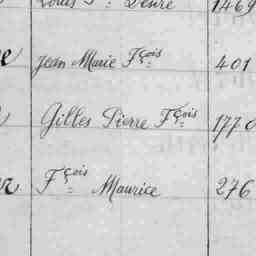 Louis Pre Désiré 1469
Jean Marie Fçois 401
Gilles Pierre Fçois 1770
Fçois Maurice 276